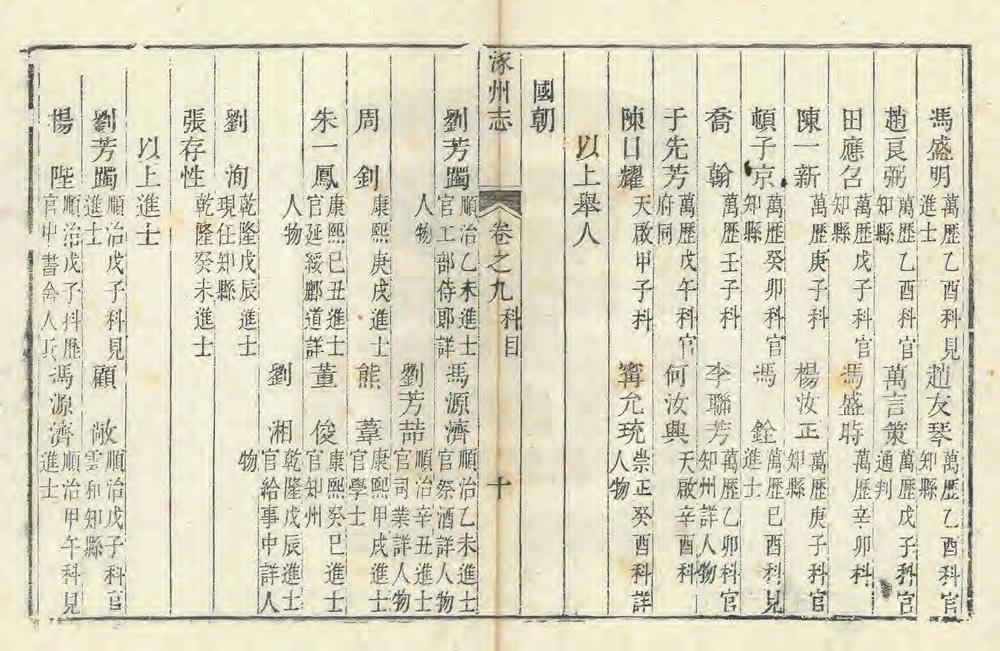 馮盛明 萬歷乙酉科見進士 趙友琴 萬歷乙酉科官知縣
趙良弼 萬歷乙酉科官知縣 萬言策 萬歷戊子科官通判
田應召 萬歷戊子科官知縣 馮盛時 萬歷辛卯科
陳一新 萬歷庚子科 楊汝正 萬歷庚子科官知縣
頓子京 萬歷癸卯科官知縣 馮銓 萬歷己酉科見進士
喬翰 萬歷壬子科 李聯芳 萬歷乙卯科官知州詳人物
于先芳 萬歷戊午科官府同 何汝興 天啟辛酉科
陳日耀 天啟甲子科 甯允珫 崇正癸酉科詳人物
以上舉人
國朝
涿州志 卷之九 科目 十
劉芳躅 順治乙未進士官工部侍郎詳人物 馮源濟 順治乙未進士官祭酒詳人物
劉芳喆 順治辛丑進士官司業詳人物
周釗 康熙庚戌進士 熊葦 康熙甲戌進士官學士
朱一鳳 康熙己丑進士官延綏鄜道詳人物 董俊 康熙癸巳進士官知州
劉洵 乾隆戊辰進士現任知縣 劉湘 乾隆戊辰進士官給事中詳人物
張存性 乾隆癸未進士
以上進士
劉芳躅 順治戊子科見進士 顧敞 順治戊子科官雲和知縣
楊陛 順治戊子科歷官中書舍人兵 馮源濟 順治甲午科見進士